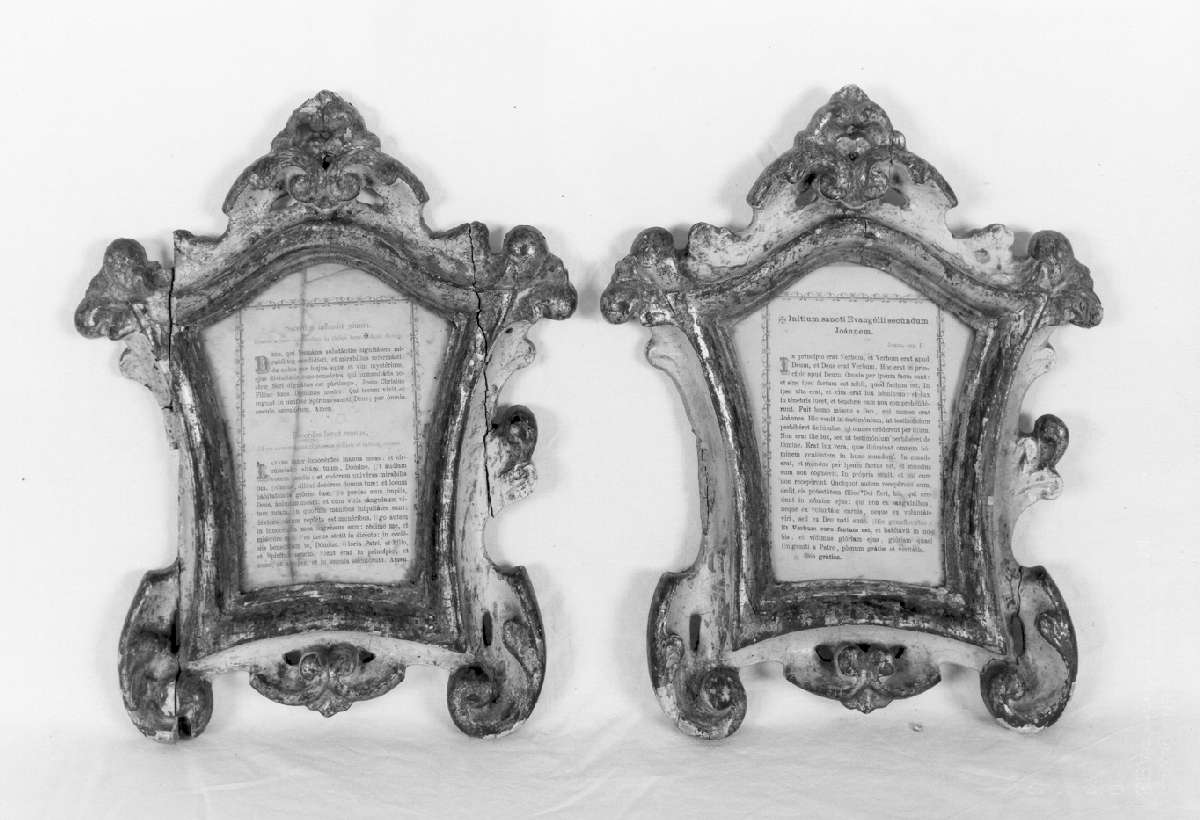 Deus, qui humánæ substántiæ dignitátem mi-
rabíliter condidísti, et mirabílius reformásti:
da nobis per hujus aquæ et vini mystérium,
ejus divinitátis esse consórtes, qui humanitátis no-
stræ fíeri dignátus est párticeps, Jesus Christus
Fílius tuus Dóminus noster: Qui tecum vivit, et
regnat in unitáte Spíritus sancti Deus: per ómnia
sæcula sæculórum. Amen.
Lavábo inter innocéntes manus meas: et cir-
cúmdabo altáre tuum, Dómine. Ut áudiam
vocem laudis: et enárrem univérsa mirabília
tua. Dómine, diléxi decórem domus tuæ: et locum
habitatiónis glóriæ tuæ. Ne perdas cum ímpiis,
Deus, ánimam meam: et cum viris sánguinum vi-
tam meam. In quorum mánibus iniquitátes sunt:
déxtera eórum repléta est munéribus. Ego autem
in innocéntia mea ingréssus sum: rédime me, et
miserére mei. Pes meus stetit in dirécto: in ecclé-
siis benedícam te, Dómine. Glória Patri, et Fílio,
et Spirítui sancto. Sicut erat in princípio, et
nunc, et semper, et in sæcula sæculórum. Amen.
✠ Inítium sancti Evangélii secúndum
Joánnem.
Joann. cap. 1.
In princípio erat Verbum, et Verbum erat apud
Deum, et Deus erat Verbum. Hoc erat in prin-
cípio apud Deum. Omnia per ipsum facta sunt:
et sine ipso factum est nihil, quod factum est. In
ipso vita erat, et vita erat lux hóminum: et lux
in ténebris lucet, et ténebræ eam non comprehendé-
runt. Fuit homo missus a Deo, cui nomen erat
Joánnes. Hic venit in testimónium, ut testimónium
perhibéret de lúmine, ut omnes créderent per illum.
Non erat ille lux, sed ut testimónium perhibéret de
lúmine. Erat lux vera, quæ illúminat omnem hó-
minem veniéntem in hunc mundum. In mundo
erat, et mundus per ipsum factus est, et mundus
eum non cognóvit. In própria venit, et sui eum
non recepérunt. Quotquot autem recepérunt eum,
dedit eis potestátem fílios Dei fíeri, his, qui cre-
dunt in nómine ejus: qui non ex sanguínibus,
neque ex voluntáte carnis, neque ex voluntáte
viri, sed ex Deo nati sunt. Hic genuflectitur:
Et Verbum caro factum est, et habitávit in no-
bis: et vídimus glóriam ejus, glóriam quasi
Unigéniti a Patre, plenum grátiæ et veritátis.
Deo grátias.